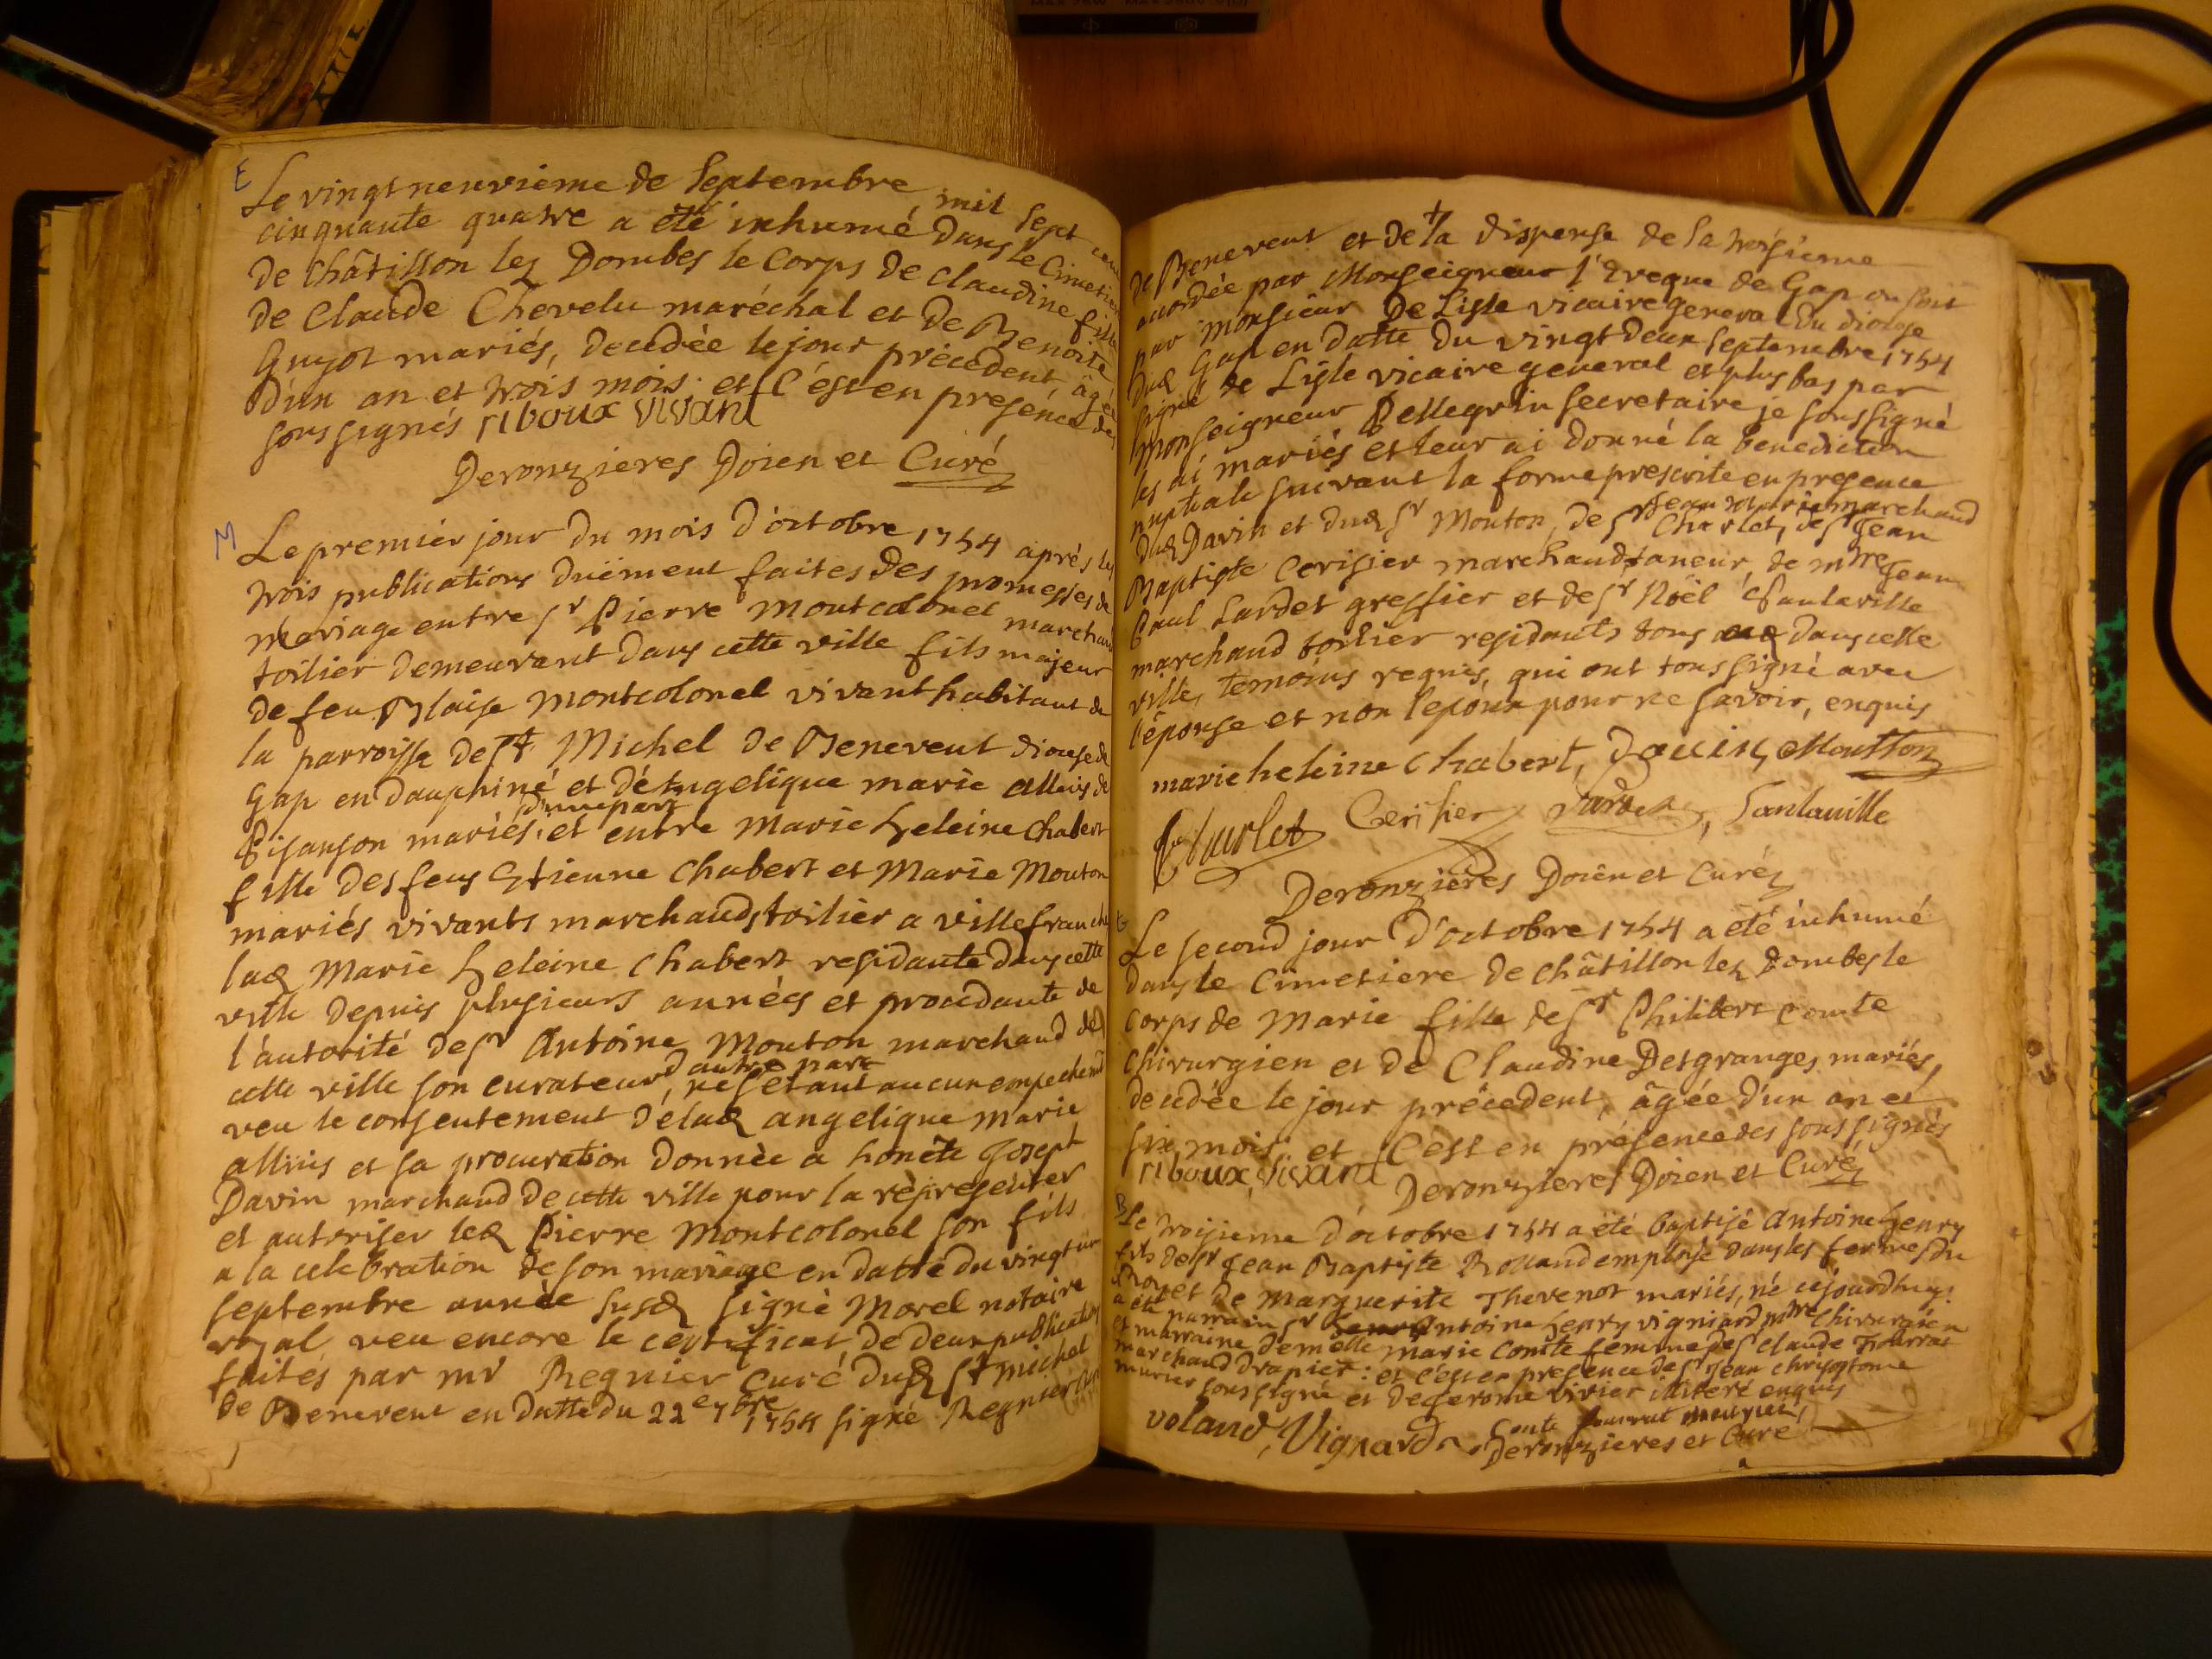 E
Le vingt neuvième de Septembre, mil sept cent
cinquante quatre a été inhumé dans le Cimetiere
de Châtillon les Dombes le Corps de claudine fille
de Claude Chevelu maréchal et de Benoite
Guyot mariés, decedée le jour précedent âgée
d'un an et trois mois. et C'est en presénce des
sous signés riboux vivant
Deronzieres Doien et Curé
M
Le premier jour du mois d'octobre 1754 aprés les
trois publications duëment faites des promesses de
mariage entre sr Pierre Montcolonel marchand
toilier demeurant dans cette ville fils majeur
de feu Blaise Montcolonel vivant habitant de
la parroisse de St Michel de Benevent diocese de
Gap en dauphiné et d'éAngelique marie Allins de
d'une part
Pisanson mariés; et entre Marie heleine Chabert
fille des feus Etienne Chabert et Marie Mouton
mariés vivants marchands toilier a villefranche
lad Marie heleine Chabert residante dans cette
ville depuis plusieurs années et procedante de
l'autorité de sr Antoine Mouton marchand de
d'autre part
cette ville son curateur, ne s'étant aucun empechemt
veu le consentement d'élad angelique Marie
allins et sa procuration donnée a honête Joseph
Davin marchand de cette ville pour la répresenter
et autoriser led Pierre Montcolonel son fils
a la celebration de son mariage en datte du vingt un
septembre année susd signé Morel notaire
royal, veu encore le certificat de deux publications
faites par mr Regnier Curé dud St Michel
de Benevent en datte du 22e 7bre 1754 signé Regnier curé
de Benevent et de la dispense de la troisieme
accordée par Monseigneur l'Eveque de Gap ou soit
par Monsieur De Lisle vicaire general du diocese
dud Gap en datte du vingt deux Septembre 1754
signé de Lisle vicaire general et plus bas par
monseigneur Pellegrin secretaire je soussigné
les ai mariés et leur ai donné la benediction
nuptiale suivant la forme prescrite en presence
Jean marie marchand
dud Davin et dud sr Mouton, de sr Charlet, de sr Jean
Baptiste Cerisier marchand taneur, de mtre Jean
Paul Lardet greffier et de sr Noël Santaville
marchand toilier residants tous dans cette
ville, temoins requis, qui ont tous signé avec
l'épouse et non l'epoux pour ne savoir, enquis
marie heleine Chabert, Davin, Moutton
Charlet Cerisier Lardet, Santaville
Deronzieres Doien et Curé
E
Le second jour d'octobre 1754 a été inhumé
dans le Cimetiere de châtillon les Dombes le
Corps de Marie fille de sr Philibert Comte
Chirurgien et de Claudine Desgranges mariés,
decedée le jour précedent, âgée d'un an et
six mois. et C'est en présence des sous signés
riboux, vivant Deronzieres Doien et Curé
B
Le troisieme d'octobre 1754 a été baptisé Antoine henry
fils de sr Jean Baptiste Rolland employé dans les fermes du
Roy et de Marguerite Thevenot mariés, né cejourdhuy.
a été parrain sr Antoine henry vigniard mtre Chirurgien
et marraine demelle Marie Comte femme de sr claude Fourrat
marchand drapier: et c'est en presence de sr Jean Chrisostome
murier sous signé et de Jerome vivier illiteré enquis
voland, Vignard Conte fourrat
Deronzieres et Curé